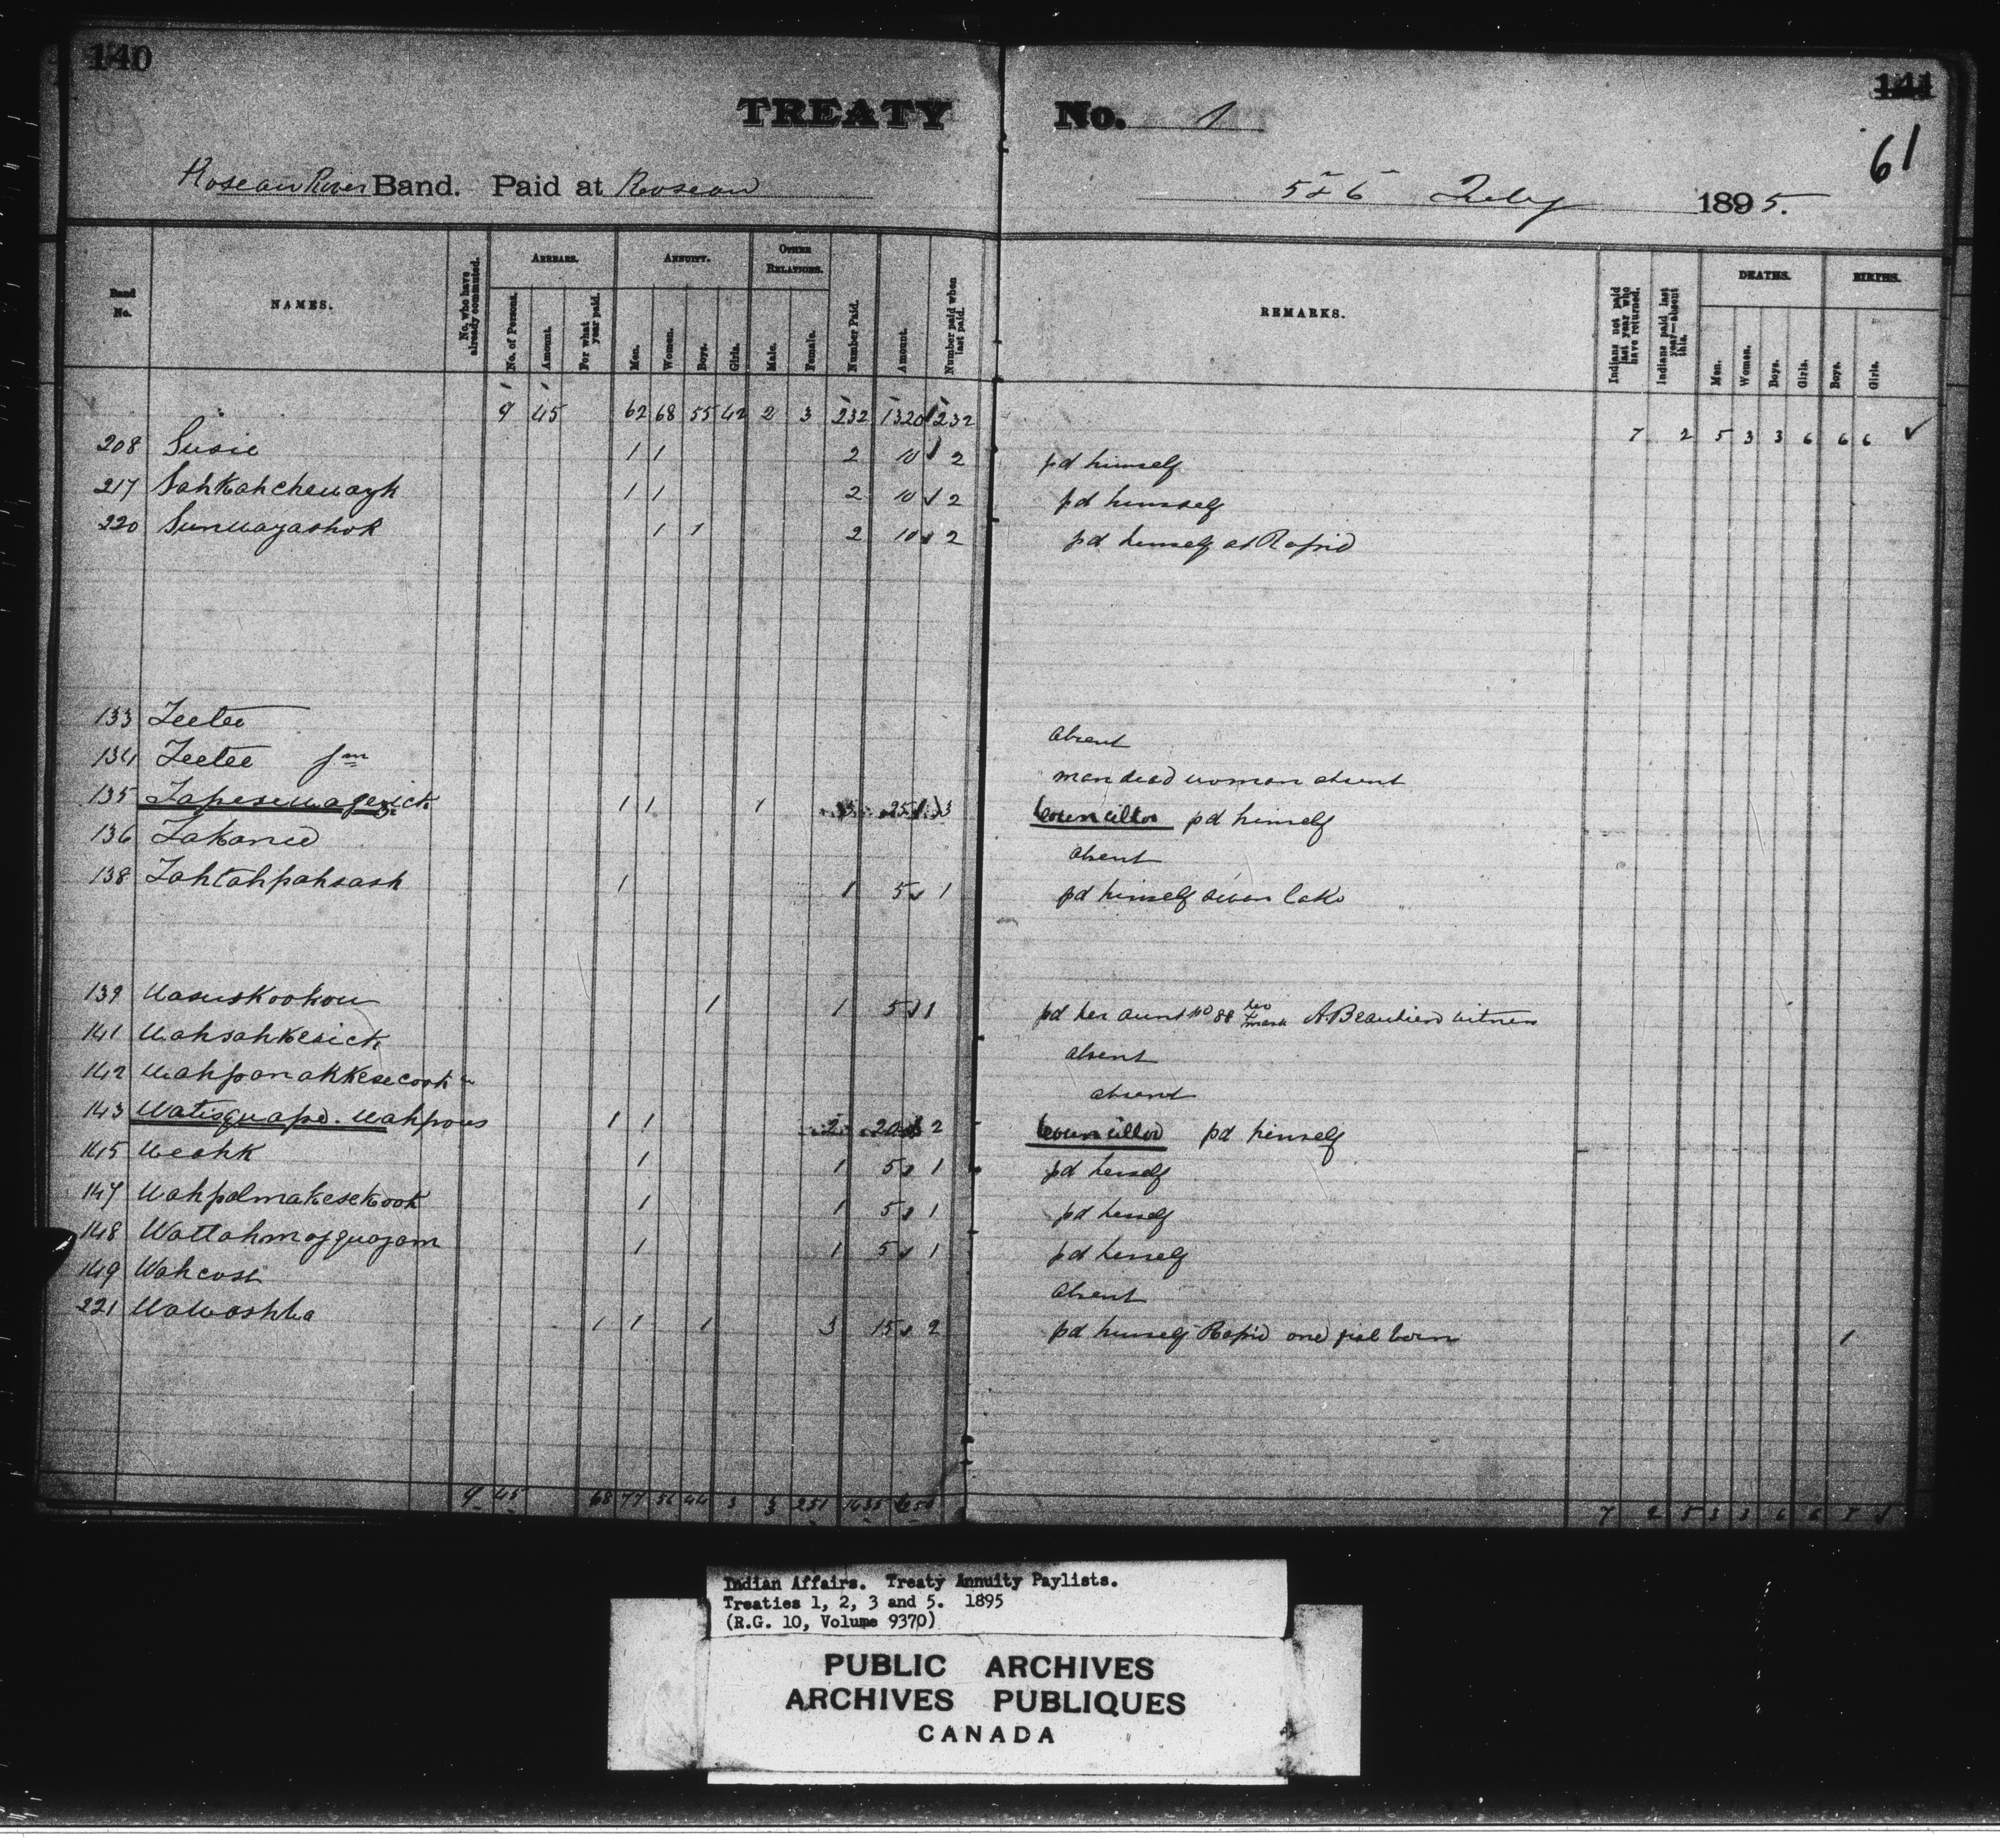 140
141
TREATY No. 1
61
Roseau River Band. Paid at Roseau 5 & 6 July 1895.
Band No.
NAMES.
No. who have already commuted.
ARREARS.
No. of Persons.
Amount.
For what year paid.
ANNUITY.
Men.
Women.
Boys.
Girls.
OTHER RELATIONS.
Male.
Female.
Number Paid.
Amount.
Number paid when last paid.
REMARKS.
Indians not paid last year who have returned.
Indians paid last year—absent this.
DEATHS.
Men.
Women.
Boys.
Girls.
BIRTHS.
Boys.
Girls.
9 45 62 68 55 42 2 3 232 1320 232 7 2 5 3 3 6 6 6 ✓
208 Susie 1 1 2 10 2 pd himself
217 Sahkahchewayh 1 1 2 10 2 pd himself
220 Sunwayashok 1 1 2 10 2 pd himself at Rapid
133 Teetee absent
134 Teetee Jnr man dead woman absent
135 Tapesewagezick 1 1 1 3 25 3 Councillor pd himself
136 Takanid absent
138 Tahtahpahsash 1 1 5 1 pd himself Swan Lake
139 Wasuskookou 1 1 5 1 pd her aunt No 88 her mark A. Beaulieu witness
141 Wahsahkesick absent
142 Wahpanahkesecook absent
143 Watisquape. Wahpous 1 1 2 20 2 Councillor pd himself
145 Weahk 1 1 5 1 pd herself
147 Wahpalmakesekook 1 1 5 1 pd herself
148 Wattahmasquagam 1 1 5 1 pd herself
149 Wahcosh absent
221 Wawashka 1 1 1 3 15 2 pd himself Rapid one girl born 1
9 45 68 77 56 44 3 3 251 1435 7 2 5 3 3 6 6
Indian Affairs. Treaty Annuity Paylists.
Treaties 1, 2, 3 and 5. 1895
(R.G. 10, Volume 9370)
PUBLIC ARCHIVES
ARCHIVES PUBLIQUES
CANADA